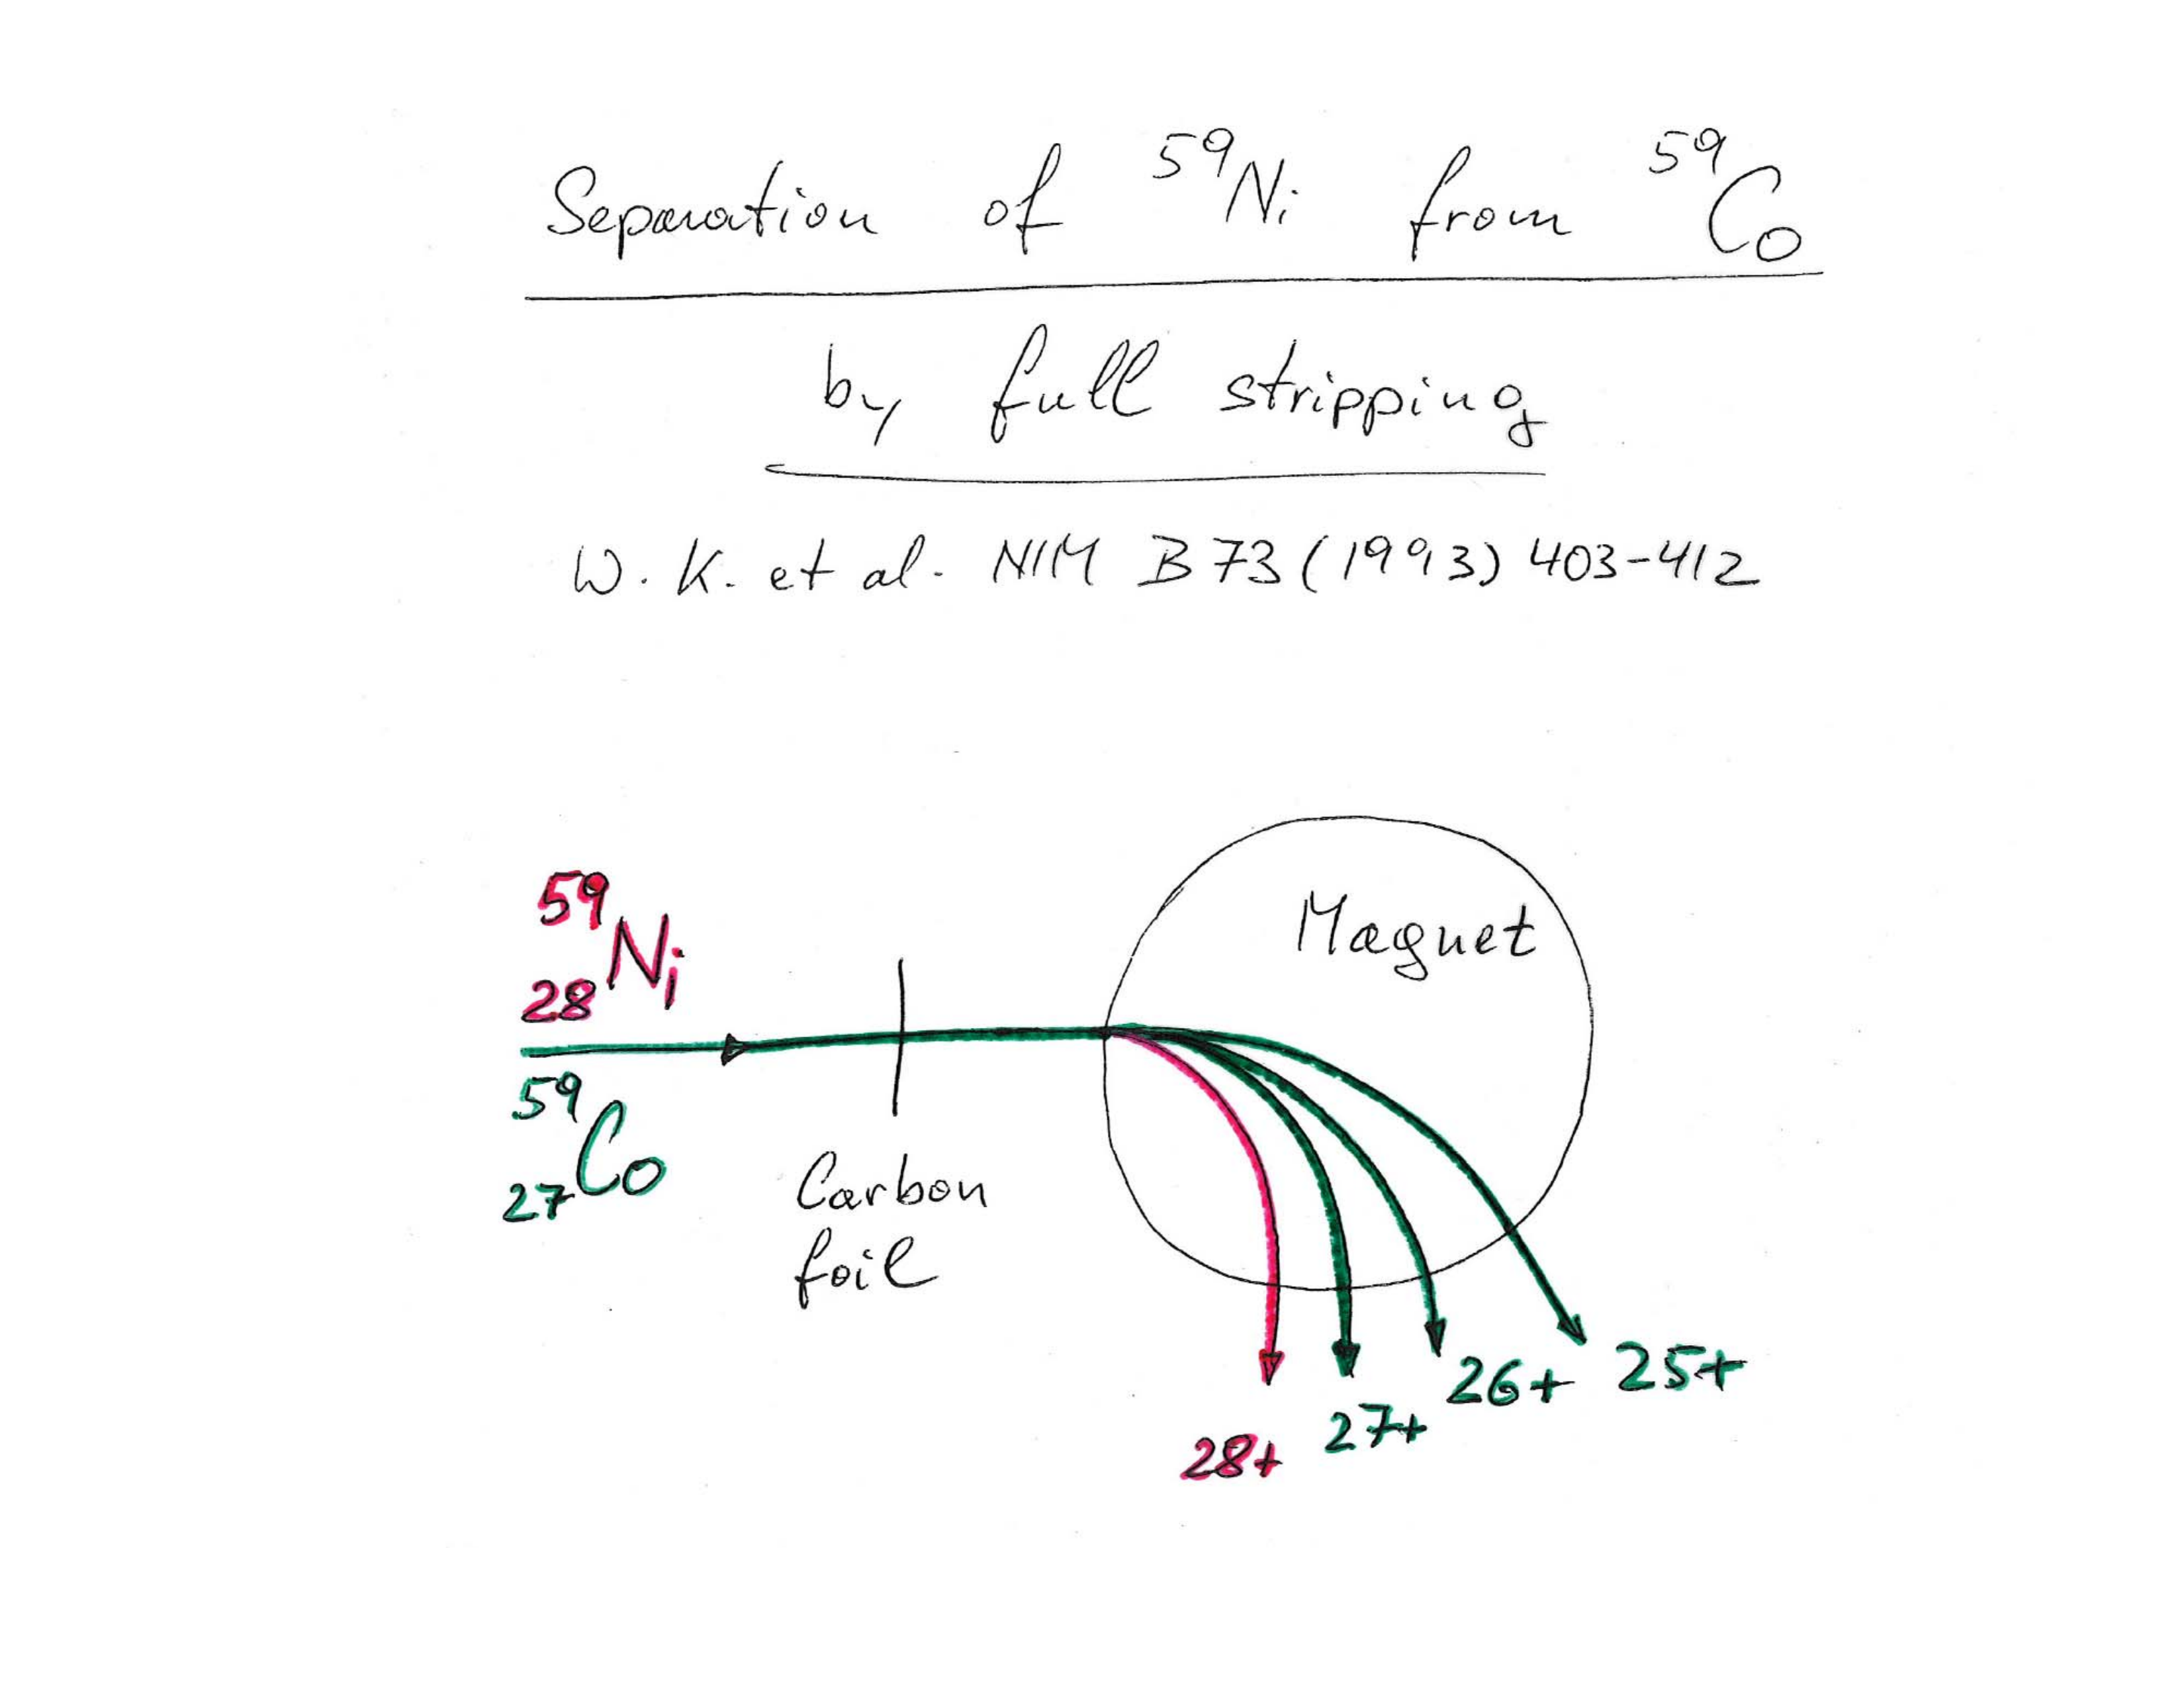 Separation of ⁵⁹Ni from ⁵⁹Co
by full stripping
W. K. et al. NIM B 73 (1993) 403-412
Magnet
⁵⁹₂₈Ni
⁵⁹₂₇Co
Carbon
foil
28+ 27+ 26+ 25+